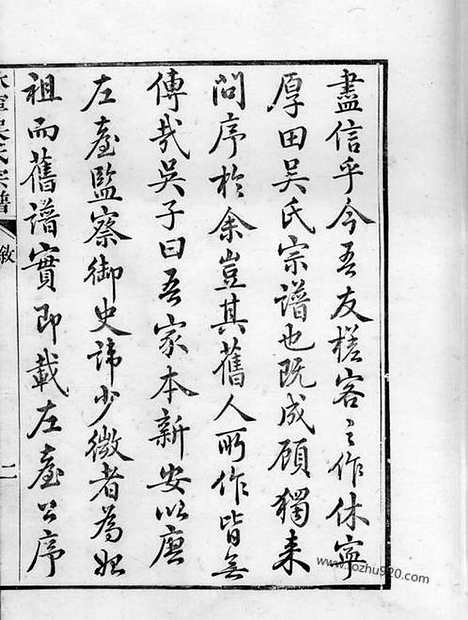 盡信乎今吾友槎客之作休寧
厚田吳氏宗譜也既成顧獨來
問序於余豈其舊人所作皆無
傳哉吳子曰吾家本新安以唐
左臺監察御史諱少微者為始
祖而舊譜實即載左臺公序
休寧吳氏宗譜
敘
二
www.yozhu920.com